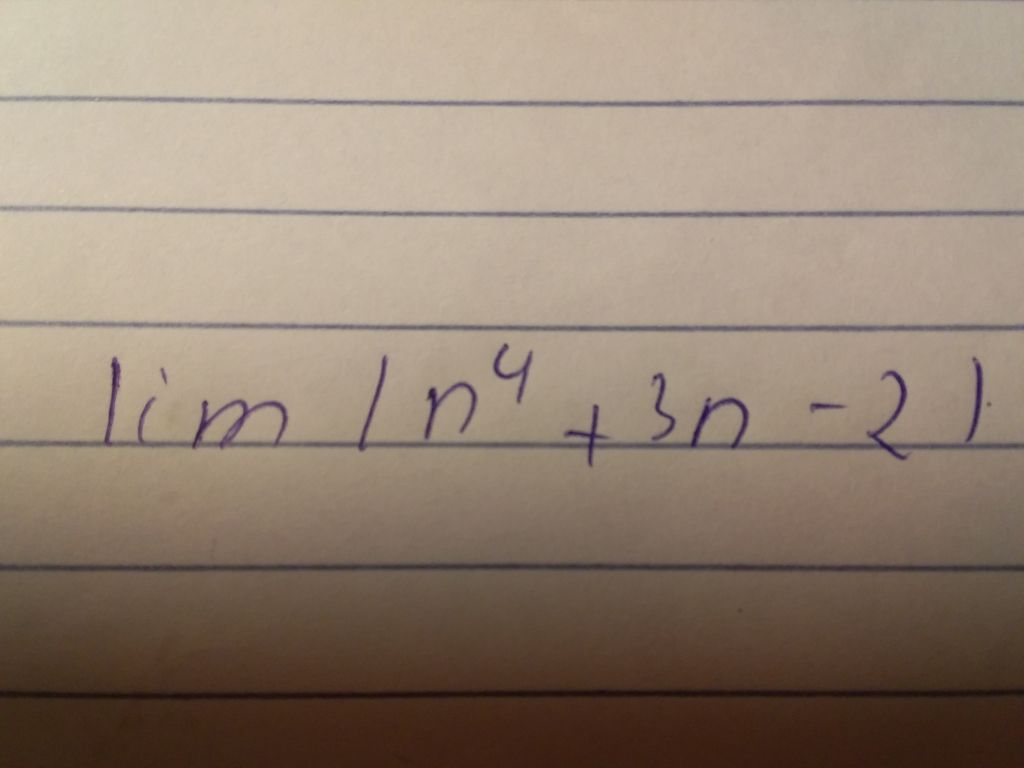 lim (n⁴ + 3n - 2)